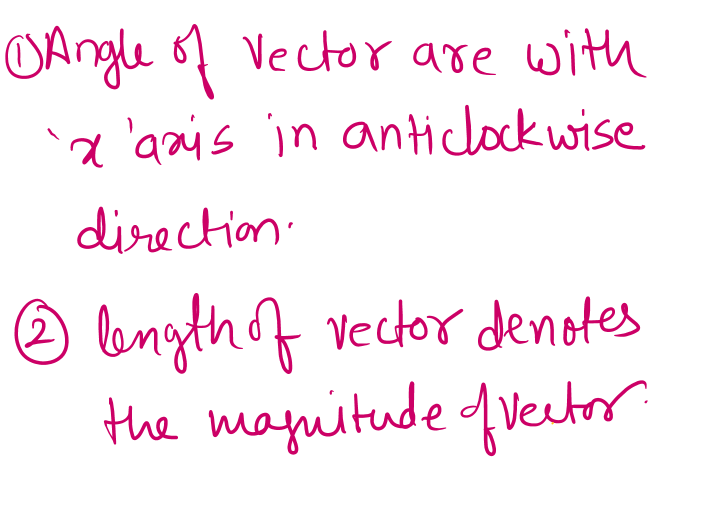 ① Angle of Vector are with
'x' axis in anticlockwise
direction.
② length of vector denotes
the magnitude of Vector.